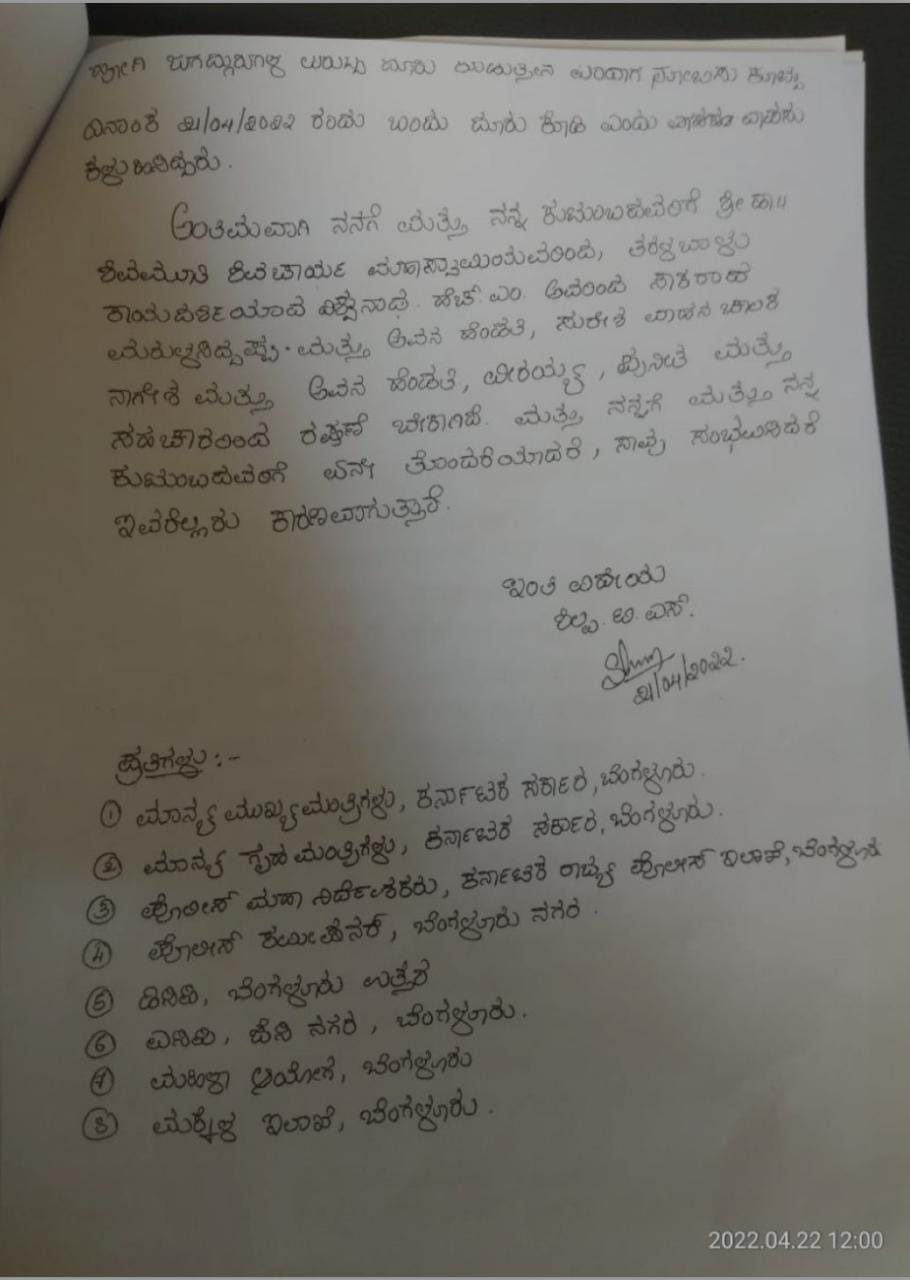 ದಿನಾಂಕ 21/04/2022 ರಂದು ಬಂದು ದೂರು ಕೊಡಿ ಎಂದು ವಾಪಸು
ಕಳುಹಿಸಿದ್ದರು.
ಅಂತಿಮವಾಗಿ ನನಗೆ ಮತ್ತು ನನ್ನ ಕುಟುಂಬದವರಿಗೆ ಶ್ರೀ ಡಾ||
ಶಿವಮೂರ್ತಿ ಶಿವಚಾರ್ಯ ಮಹಾಸ್ವಾಮಿಯವರಿಂದ, ತರಳಬಾಳು
ಕಾರ್ಯದರ್ಶಿಯಾದ ವಿಶ್ವನಾಥ. ಹೆಚ್.ಎಂ. ಅವರಿಂದ
ಮರುಳಸಿದ್ದಪ್ಪ. ಮತ್ತು ಅವನ ಹೆಂಡತಿ, ಸುರೇಶ ವಾಹನ ಚಾಲಕ
ನಾಗೇಶ ಮತ್ತು ಅವನ ಹೆಂಡತಿ, ವೀರಯ್ಯ, ಪುನೀತ ಮತ್ತು
ಸಹಚಾರರಿಂದ ರಕ್ಷಣೆ ಬೇಕಾಗಿದೆ. ಮತ್ತು ನನ್ನಗೆ ಮತ್ತು ನನ್ನ
ಕುಟುಂಬದವರಿಗೆ ಏನೇ ತೊಂದರೆಯಾದರೆ, ಸಾವು ಸಂಭವಿಸಿದರೆ
ಇವರೆಲ್ಲರು ಕಾರಣವಾಗುತ್ತಾರೆ.
ಇಂತಿ ವಿಧೇಯ
ಶಿಲ್ಪ. ಟಿ. ಎಸ್.
21/04/2022.
ಪ್ರತಿಗಳು :-
① ಮಾನ್ಯ ಮುಖ್ಯಮಂತ್ರಿಗಳು, ಕರ್ನಾಟಕ ಸರ್ಕಾರ, ಬೆಂಗಳೂರು.
② ಮಾನ್ಯ ಗೃಹ ಮಂತ್ರಿಗಳು, ಕರ್ನಾಟಕ ಸರ್ಕಾರ, ಬೆಂಗಳೂರು.
③ ಪೊಲೀಸ್ ಮಹಾ ನಿರ್ದೇಶಕರು, ಕರ್ನಾಟಕ ರಾಜ್ಯ ಪೊಲೀಸ್ ಇಲಾಖೆ, ಬೆಂಗಳೂರು
④ ಪೊಲೀಸ್ ಕಮೀಷನರ್, ಬೆಂಗಳೂರು ನಗರ.
⑤ ಡಿಸಿಪಿ, ಬೆಂಗಳೂರು ಉತ್ತರ
⑥ ಎಸಿಪಿ, ಜೆಸಿ ನಗರ, ಬೆಂಗಳೂರು.
⑦ ಮಹಿಳಾ ಆಯೋಗ, ಬೆಂಗಳೂರು
⑧ ಮಕ್ಕಳ ಇಲಾಖೆ, ಬೆಂಗಳೂರು.
2022.04.22 12:00